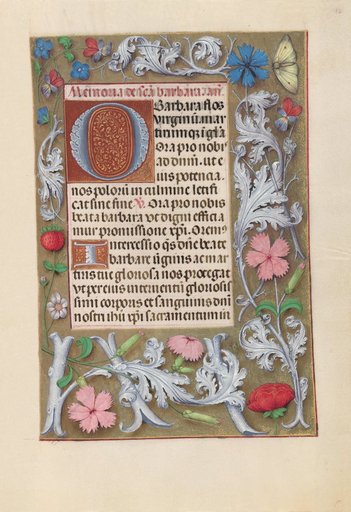 Memoria de sca barbara
O Barbara flos
virginum mar
tirium qz gla
Ora pro nobis
ad dnm. ut e
ius potencia
nos polorum in culmine letifi
cat sine fine V. Ora pro nobis
beata barbara ut digni effica
mur promissione xpi. Oremus
Intercessio qs dne beate
barbare uginis ac mar
tiris tue gloriosa nos protegat
ut per eius interuentum gloriosis
simi corporis et sanguinis dni
nostri ihu xpi sacramentum